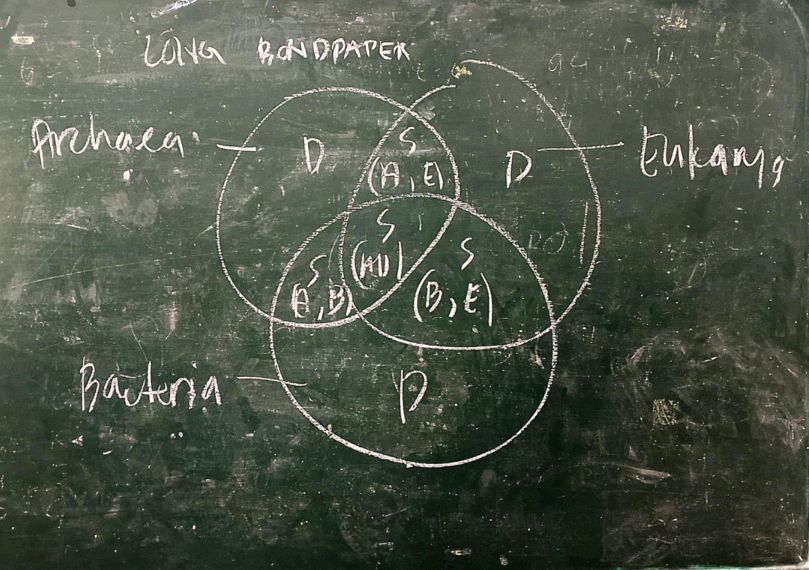 LONG BONDPAPER
Archaea
D
S
(A, E)
D
Eukarya
S
(All)
S
(A, B)
S
(B, E)
Bacteria
D